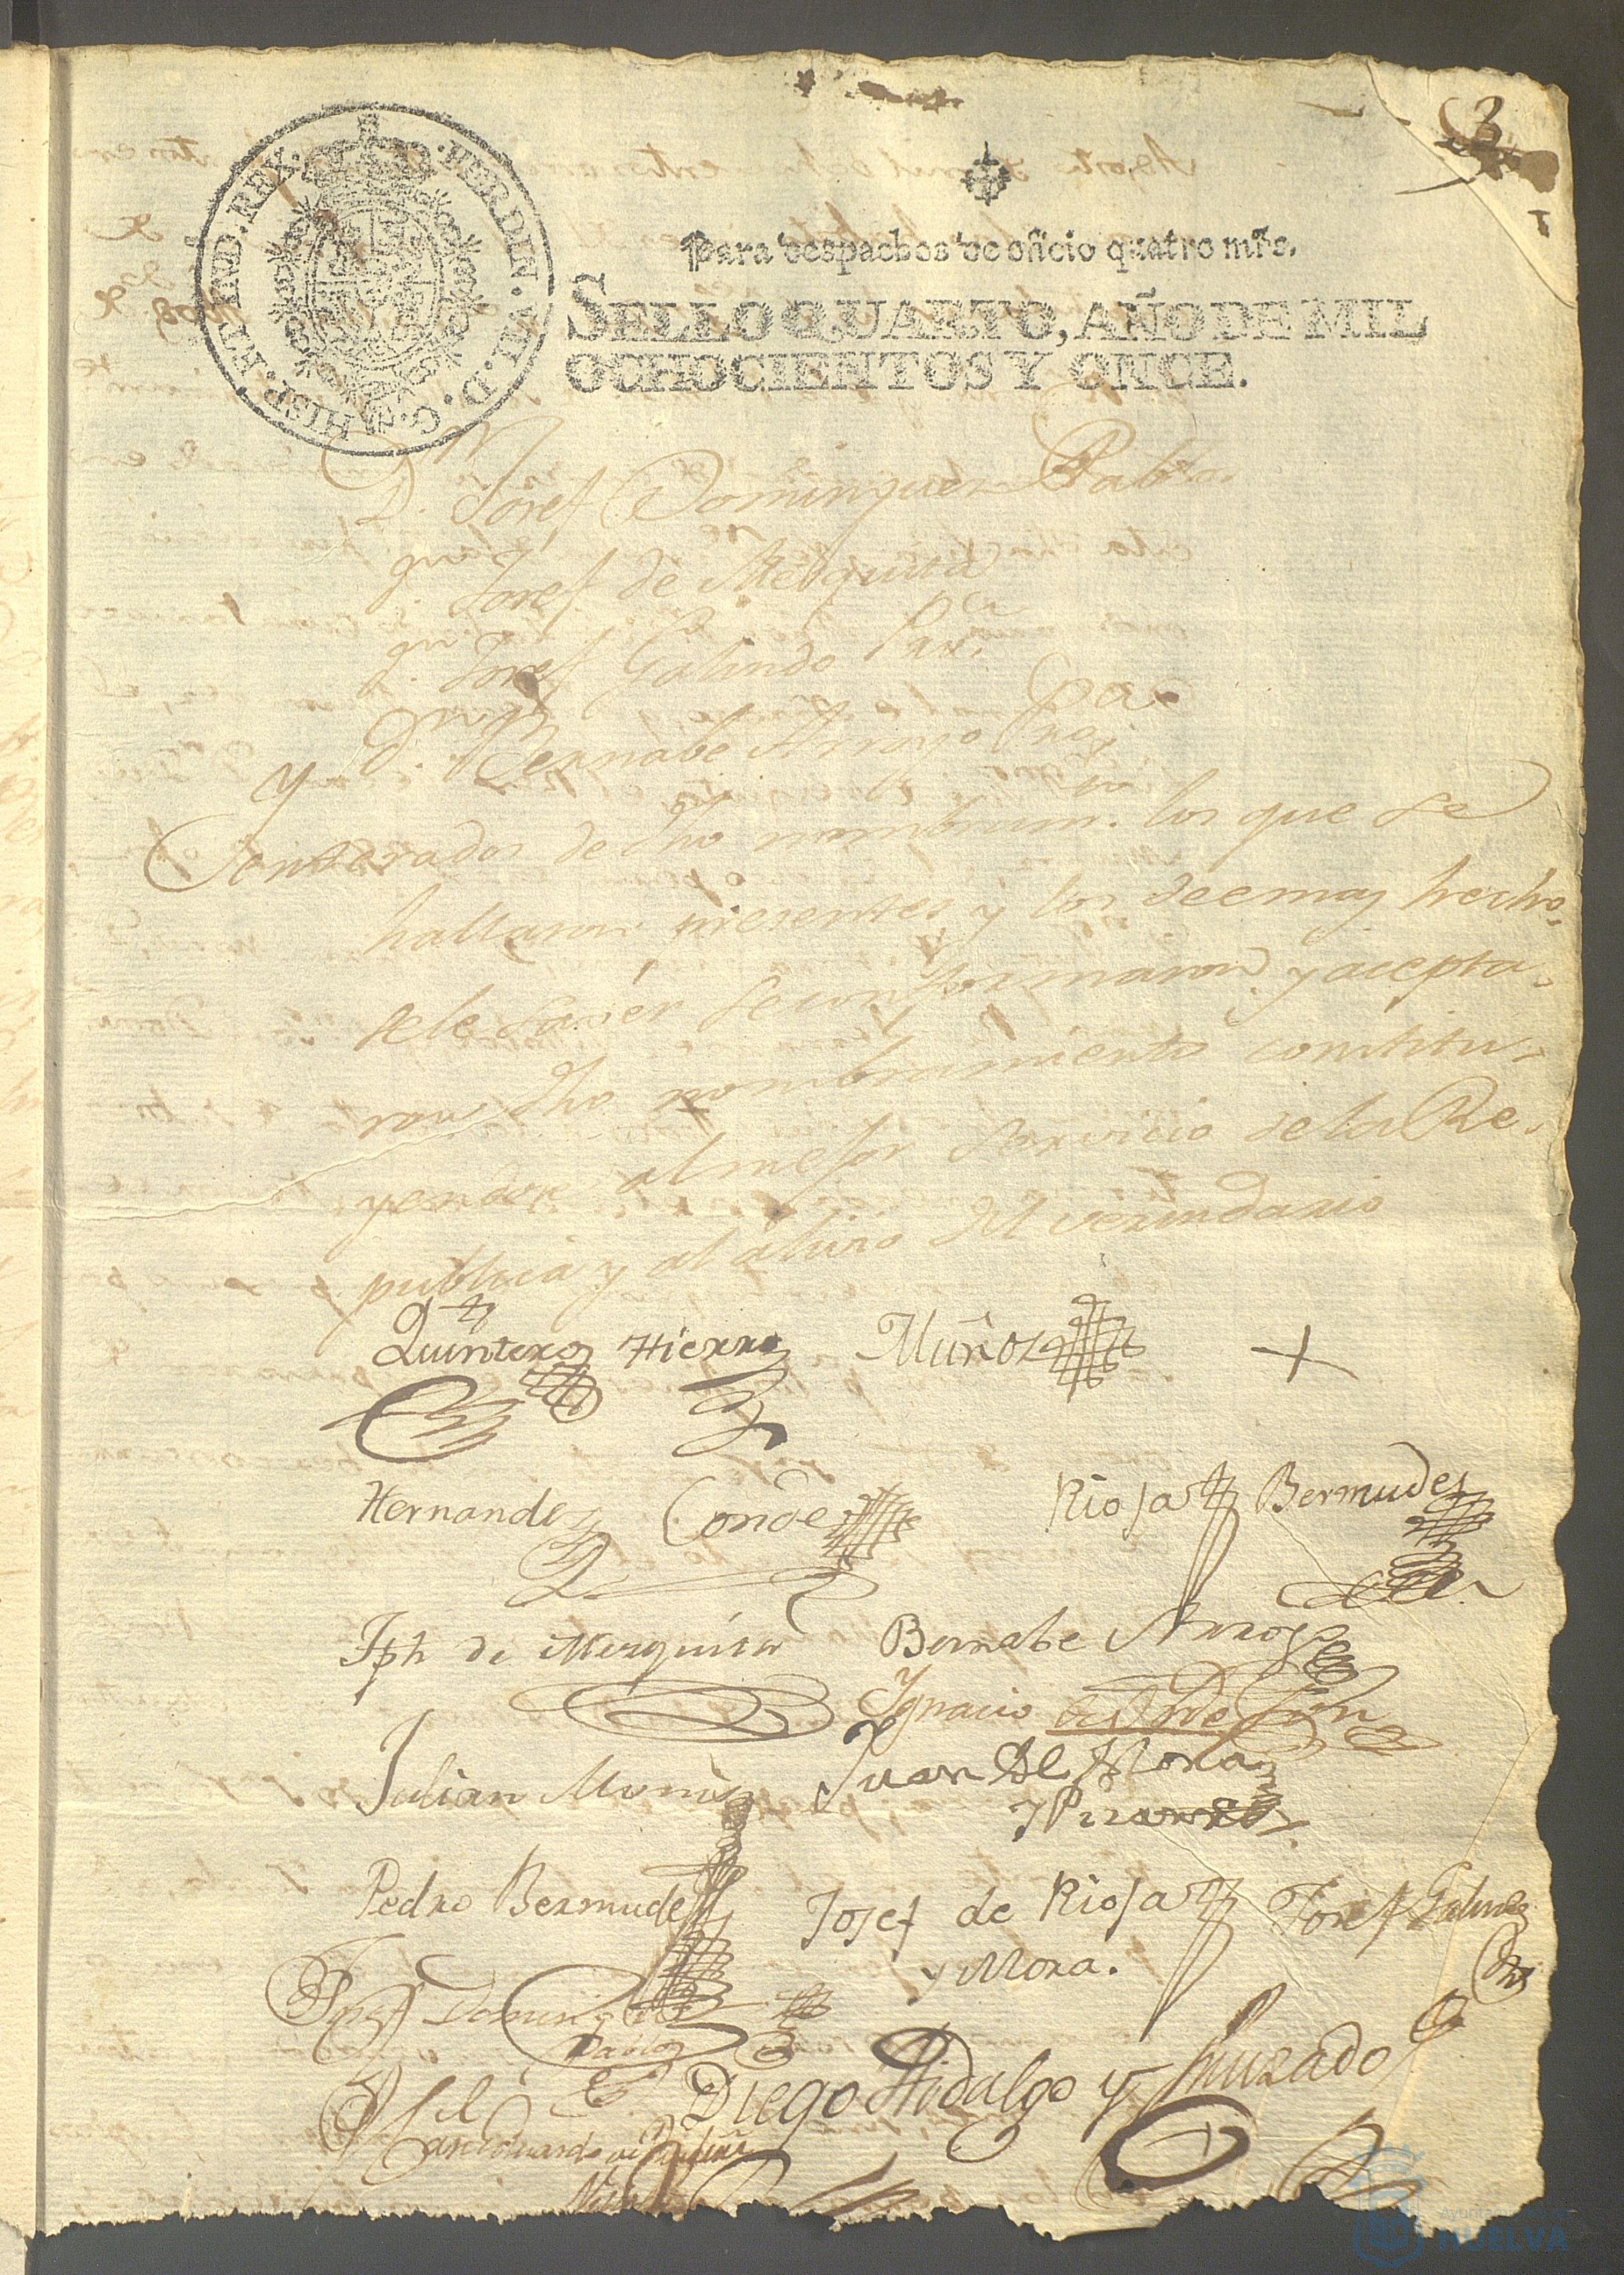 3
FERDIN. VII. D. G. HISP. ET IND. REX.
Para despachos de oficio quatro mrs.
SELLO QUARTO, AÑO DE MIL
OCHOCIENTOS Y ONCE.
Dn. Josef Dominguez Pablo.
Dn. Josef de Mezquita
Dn. Josef Galindo
Y Dn. Bernabe Arroyo
de dho nombram.to los que se
hallaron presentes, y los deemas hecho-
sele saver se conformaron, y acepta-
ron dho nombramiento constitu-
yendose al mejor servicio de la Re-
publica y al alivio del vecindario
Quintero Hierro Muñoz +
Hernandez Conde Rioja Bermudez
Jph de Mezquita Bernabe Arroyo
Ignacio de Ordejon
Julian Muñoz Juan de Mora
y Pizarro
Pedro Bermudez Josef de Rioja Josef Galindo
y Mora.
Josef Doming.z
Pablo
Diego Hidalgo y Hurtado
Ayuntamiento
HUELVA